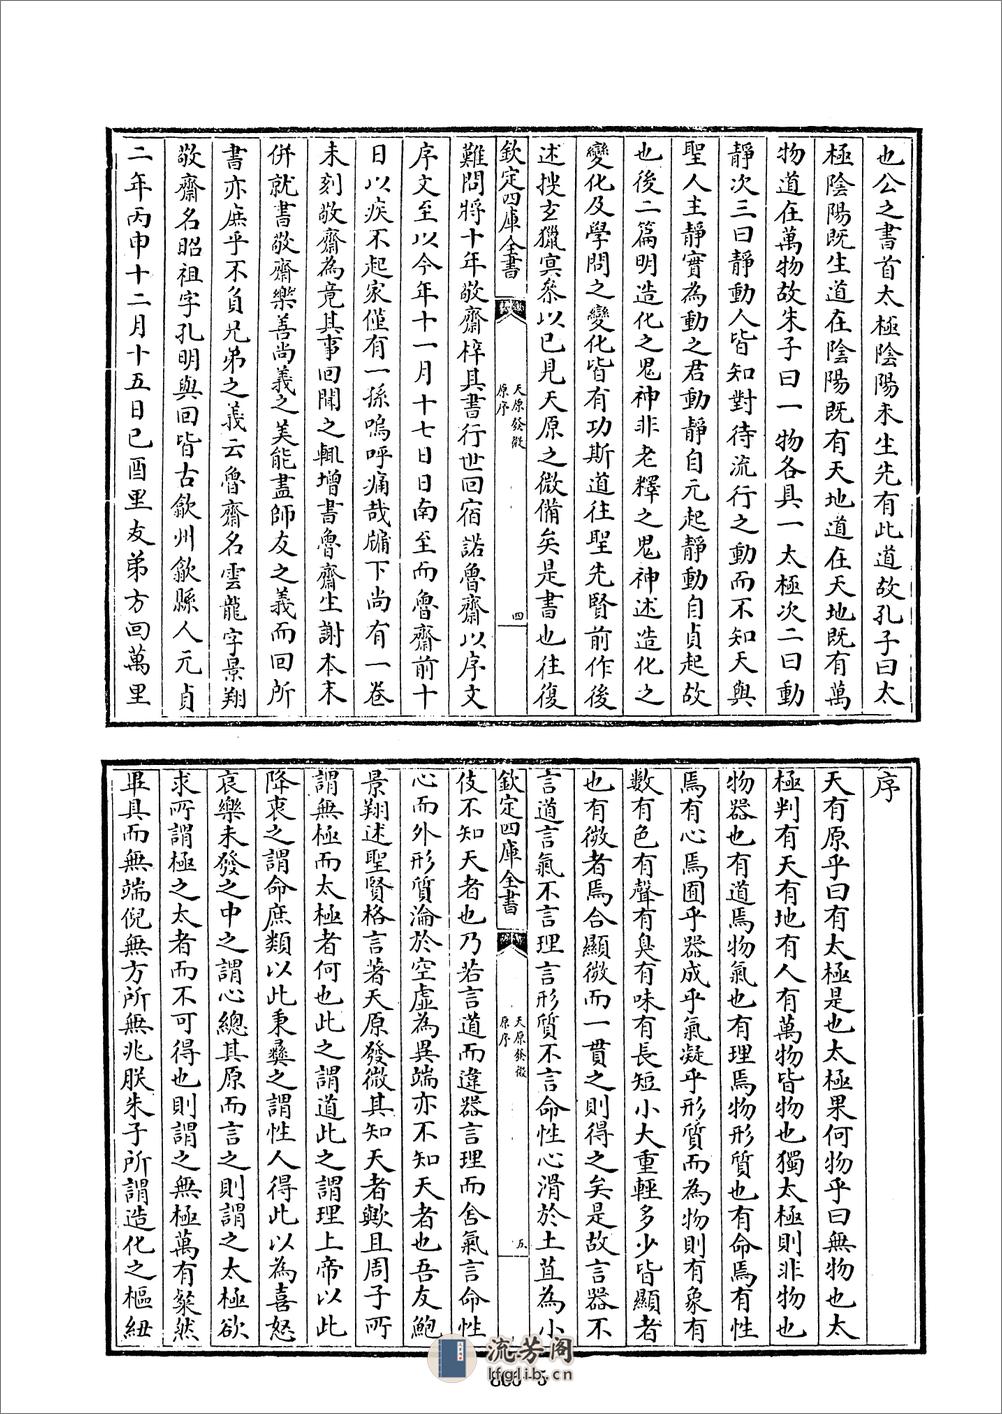 也公之書首太極陰陽未生先有此道故孔子曰太
極陰陽既生道在陰陽既有天地道在天地既有萬
物道在萬物故朱子曰一物各具一太極次二曰動
靜次三曰靜動人皆知對待流行之動而不知天與
聖人主靜實為動之君動靜自元起靜動自貞起故
也後二篇明造化之鬼神非老釋之鬼神述造化之
變化及學問之變化皆有功斯道往聖先賢前作後
述搜玄獵冥參以已見天原之微備矣是書也往復
欽定四庫全書
天原發微
原序
四
難問將十年敬齋梓其書行世回宿諾魯齋以序文
序文至以今年十一月十七日日南至而魯齋前十
日以疾不起家僅有一孫嗚呼痛哉牖下尚有一卷
未刻敬齋為竟其事回聞之輒增書魯齋生謝本末
併就書敬齋樂善尚義之美能盡師友之義而回所
書亦庶乎不負兄弟之義云魯齋名雲龍字景翔
敬齋名昭祖字孔明與回皆古歙州歙縣人元貞
二年丙申十二月十五日已酉里友弟方回萬里
序
天有原乎曰有太極是也太極果何物乎曰無物也太
極判有天有地有人有萬物皆物也獨太極則非物也
物器也有道焉物氣也有理焉物形質也有命焉有性
焉有心焉囿乎器成乎氣凝乎形質而為物則有象有
數有色有聲有臭有味有長短小大重輕多少皆顯者
也有微者焉合顯微而一貫之則得之矣是故言器不
言道言氣不言理言形質不言命性心滑於土苴為小
欽定四庫全書
天原發微
原序
五
伎不知天者也乃若言道而違器言理而舍氣言命性
心而外形質淪於空虛為異端亦不知天者也吾友鮑
景翔述聖賢格言著天原發微其知天者歟且周子所
謂無極而太極者何也此之謂道此之謂理上帝以此
降衷之謂命庶類以此秉彝之謂性人得此以為喜怒
哀樂未發之中之謂心總其原而言之則謂之太極欲
求所謂極之太者而不可得也則謂之無極萬有粲然
畢具而無端倪無方所無兆朕朱子所謂造化之樞紐
流芳阁
lfglib.cn